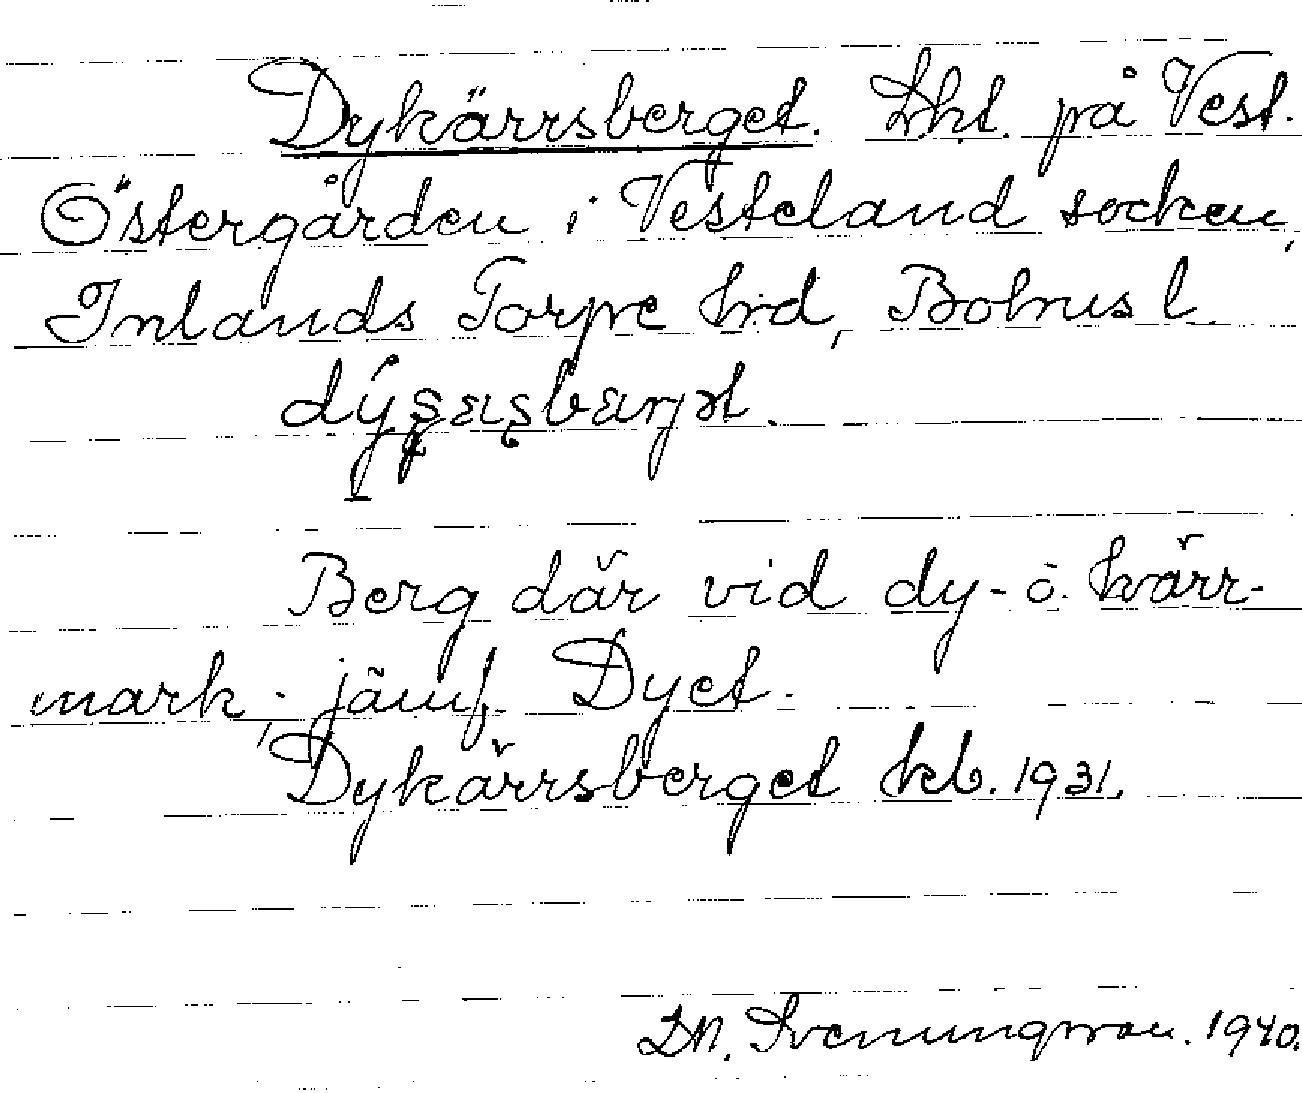 Dykärrsberget. Lht. på Vest.
Östergården i Vesteland socken,
Inlands Torpe hrd, Bohusl.
Berg där vid dy- o. kärr-
mark; jämf. Dyet.
Dykärrsberget kb. 1931.
Svenungsson. 1940.